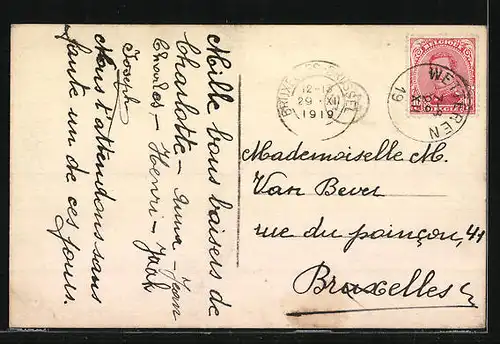 Mille bons baisers de
Charlotte - Anna - Jean
Charles - Henri - Jack
Joseph
Nous t'attendons sans
faute un de ces jours.
BRUXELLES BRUSSEL
29 XII
1919
BELGIQUE
WETTEREN
19
Mademoiselle M.
Van Bever
rue du poinçon, 41
Bruxelles